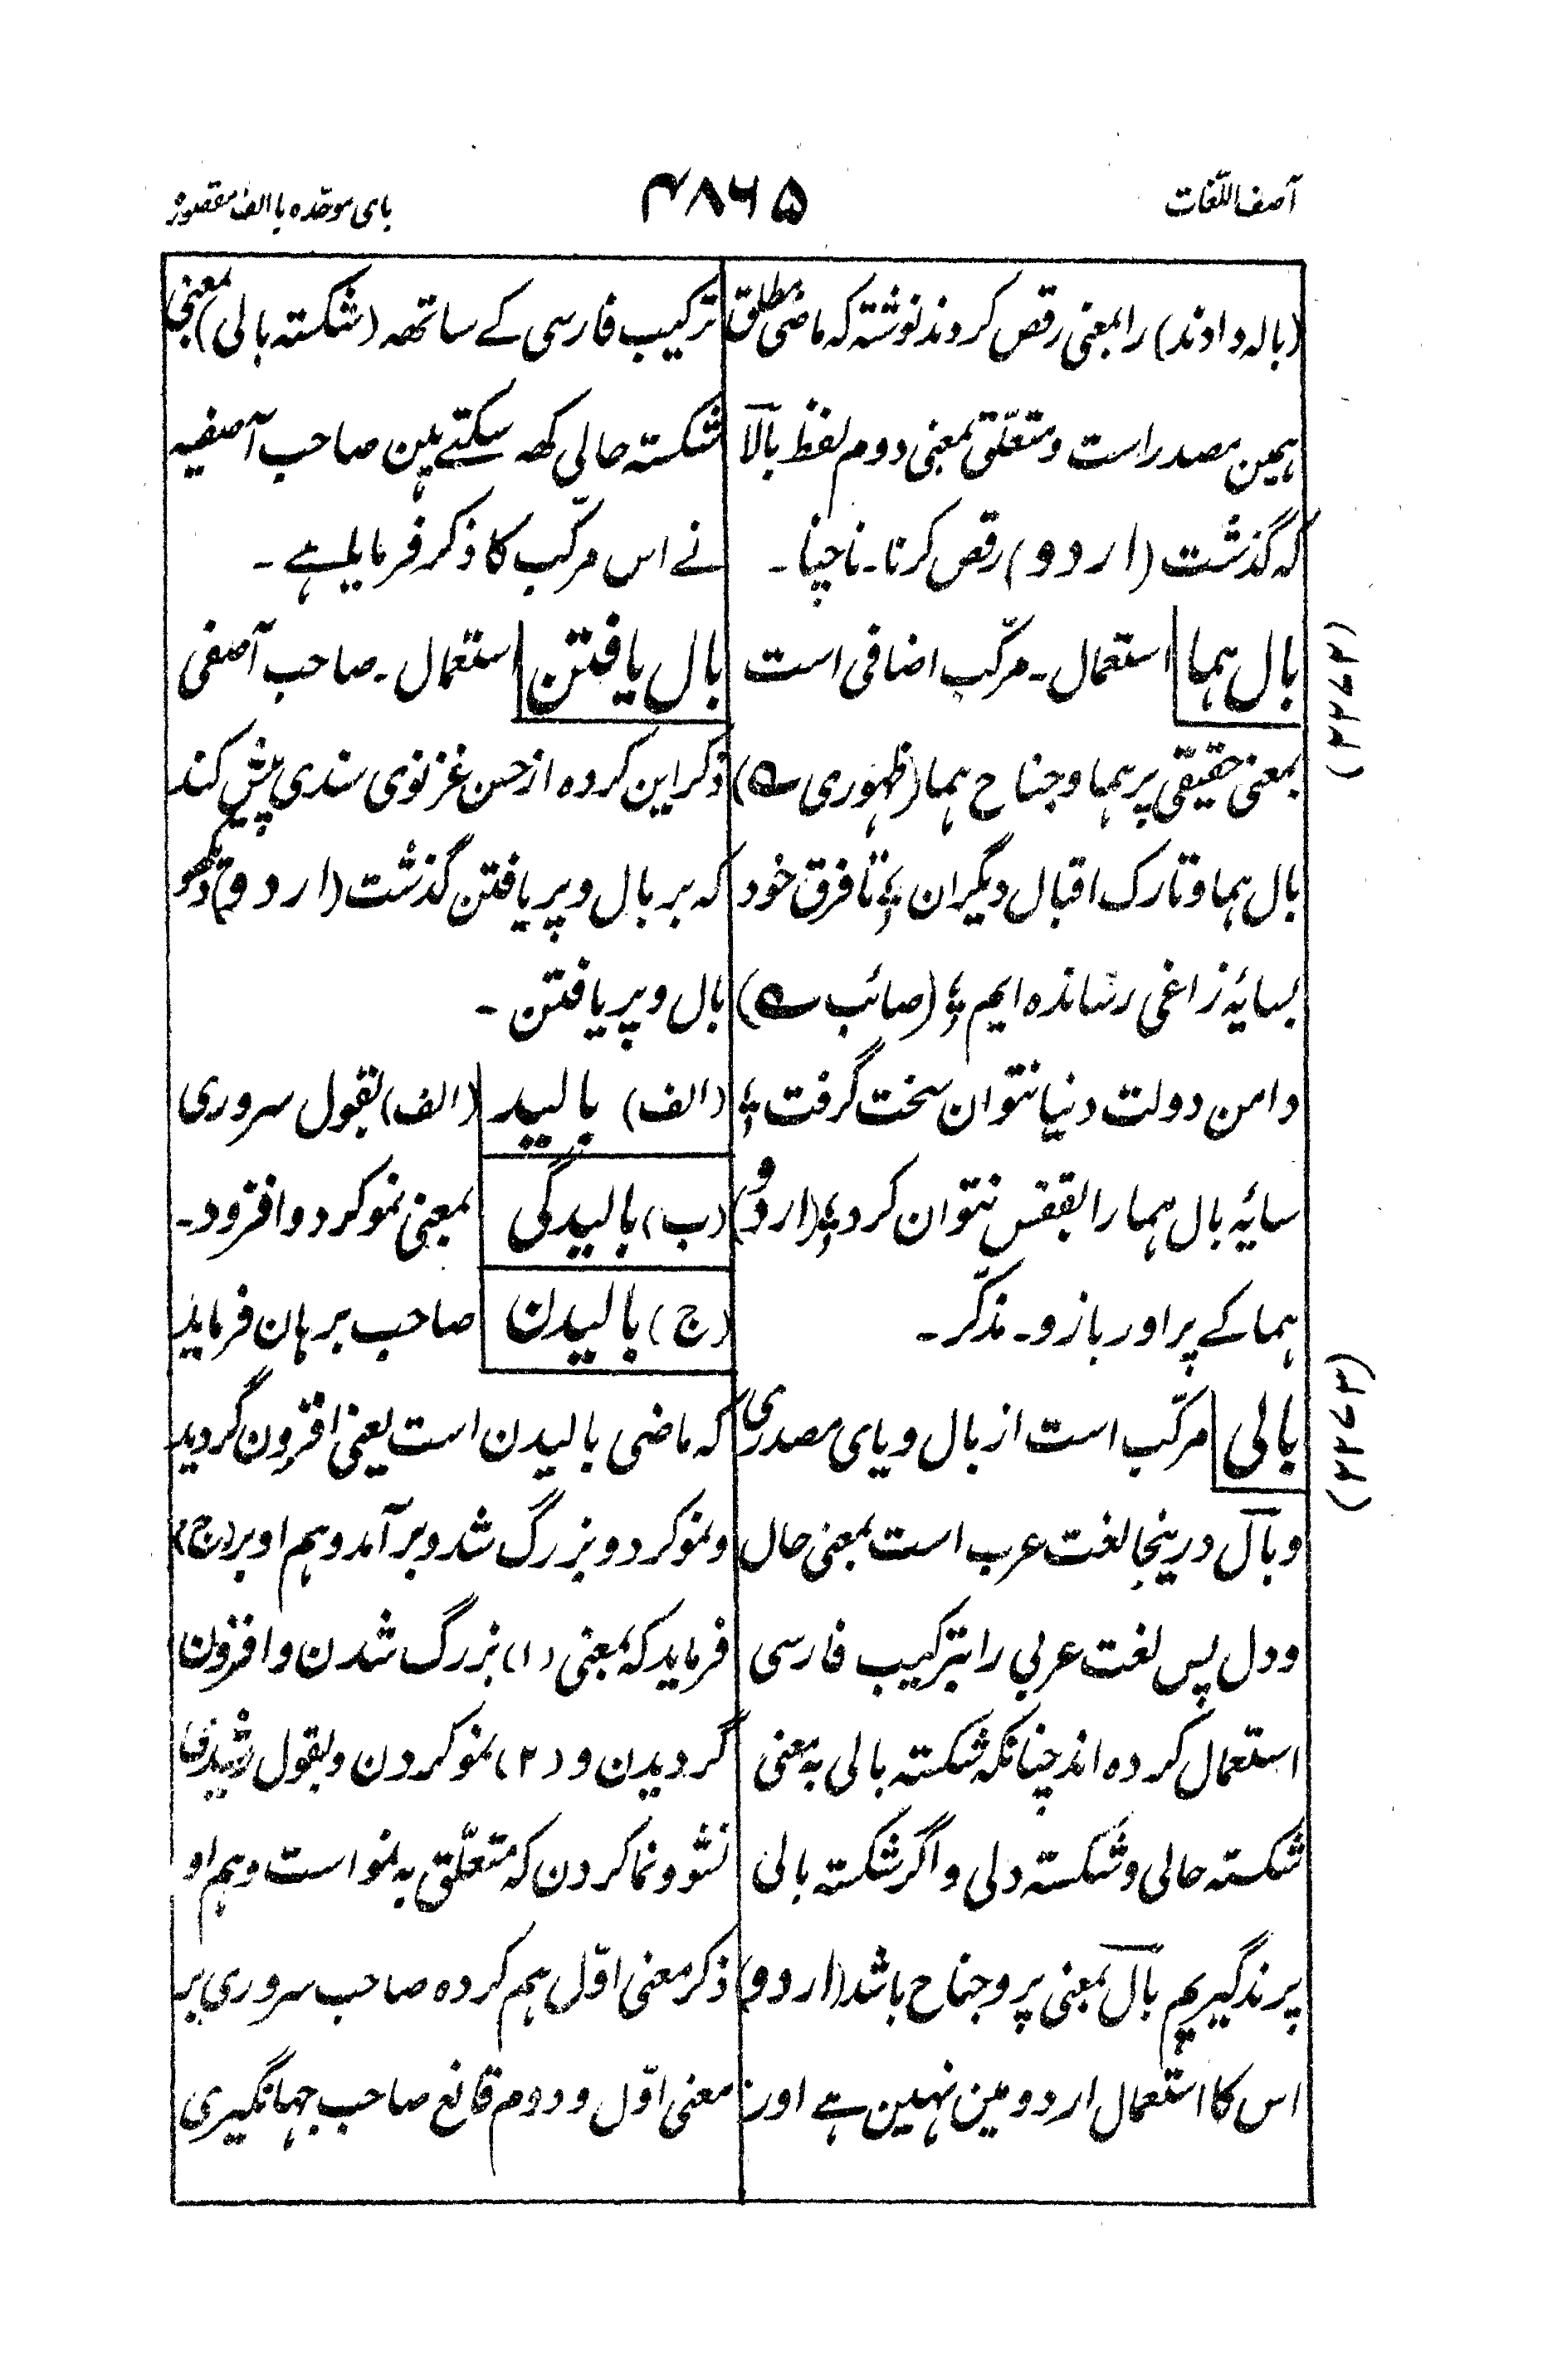 آصف اللّغات
۴۸۶۵
بای موحّده با الف مقصوره
(باله دادند) را بمعنی رقص کردند نوشته که ماضی مطلق
ہمین مصدر است و متعلّق بمعنی دوم لفظ بالآ
که گذشت (اردو) رقص کرنا۔ ناچنا۔
بال ہما استعمال۔ مرکّب اضافی است
بمعنی حقیقی پر ہما و جناح ہما (ظہوری ے)
بال ہما و تارک اقبال دیگران ؛ تا فرق خود
بسایۂ زاغی رسانده ایم ؛ (صائب ے)
دامن دولت دنیا نتوان سخت گرفت ؛
سایۂ بال ہما را بقفس نتوان کرد ؛ (اردو)
ہما کے پر اور بازو۔ مذکّر۔
بالی مرکّب است از بال و یای مصدری
و بال درینجا لغت عرب است بمعنی حال
و دل پس لغت عربی را بترکیب فارسی
استعمال کرده اند چنانکه شکسته بالی به معنی
شکسته حالی و شکسته دلی و اگر شکسته بالی
پرند گیریم بال بمعنی پر و جناح باشد (اردو)
اس کا استعمال اردو مین نہین ہے اور
(۲۲۷۲)
(۲۲۷۳)
ترکیب فارسی کے ساتھہ (شکسته بالی) بمعنی
شکسته حالی کھہ سکتے ہین صاحب آصفیہ
نے اس مرکّب کا ذکر فرمایا ہے۔
بال یافتن استعمال۔ صاحب آصفی
ذکر این کرده از حسن غزنوی سندی پیش کند
که بر بال و پر یافتن گذشت (اردو) دیکھو
بال و پر یافتن۔
(الف) بالید (الف) بقول سروری
(ب) بالیدگی بمعنی نمو کرد و افزود۔
(ج) بالیدن صاحب برہان فرماید
که ماضی بالیدن است یعنی افزون گردید
و نمو کرد و بزرگ شد و بر آمد و ہم او بر (ج)
فرماید که بمعنی (۱) بزرگ شدن و افزون
گردیدن و (۲) نمو کردن و بقول رشیدی
نشو و نما کردن که متعلّق به نمو است و ہم او
ذکر معنی اوّل ہم کرده صاحب سروری بر
معنی اوّل و دوم قانع صاحب جہانگیری